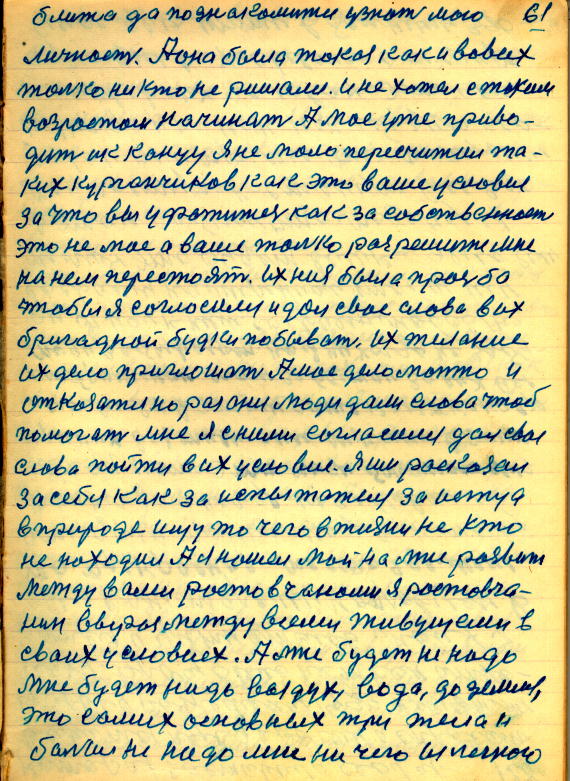 ближа да познакомити узнат мою 61
личност. А она была токоя как и вовсих
толко ни кто не ришали. и не хотел с таким
возростом начинат А мое уже приво-
дит ик концу Я не мало пересчитал та-
ких курганчиков как это ваше условие
за что вы ухватитес как за собствен­ност
это не мое а ваше толко разрешите мне
на нем перестоят. Ихняя была прозба
чтобы я согласился и дал свое слова в их
бригадной будки побыват. их желание
их дело приглошат А мое дело можно и
отказатся но раз они люди дали слова чтоб
помогат мне я с ними согласился дал свое
слова пойти в их условие. Я им росказал
за себя как за испытателя за истца
в природе ищу то чего в жизни не кто
не находил А я нашел мой на мне развит
между вами ростовчанами я ростовча-
нин ввираз между всеми живущеми в
своих условиех. А мне будет не надо
мне будет надо воздух, вода, да земля,
это самих основных три тела и
болши не надо мне ни чего из легкого